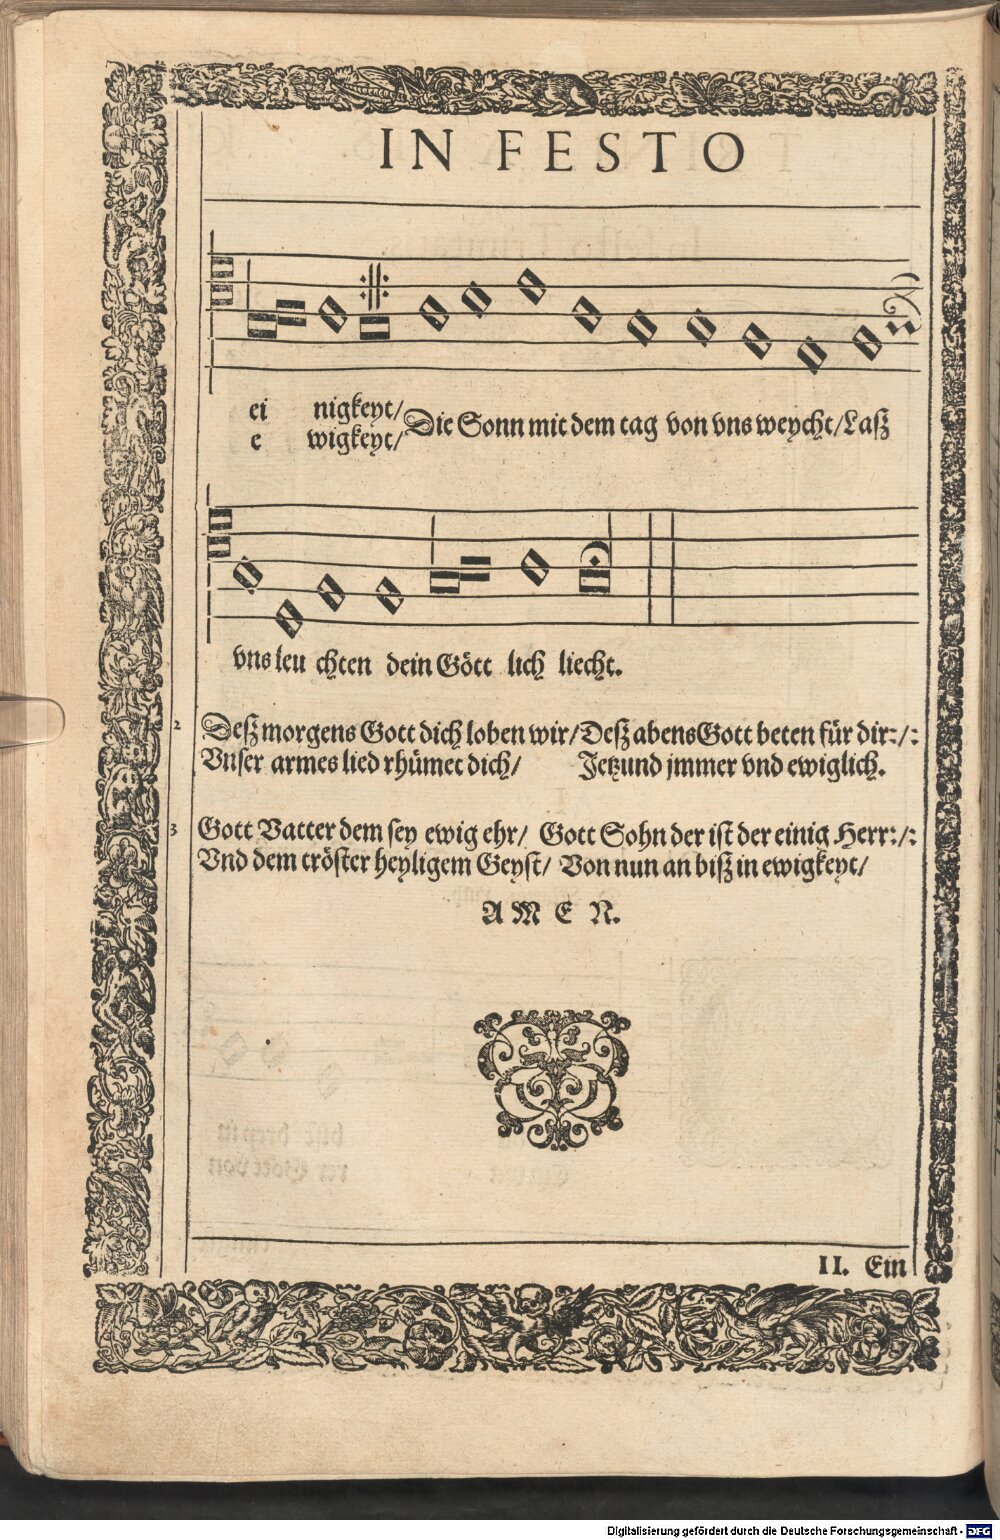 IN FESTO
ei nigkeyt/
e wigkeyt/
Die Sonn mit dem tag von vns weycht/Laß
vns leu chten dein Gött lich liecht.
2 Deß morgens Gott dich loben wir/Deß abens Gott beten für dir:/:
Vnser armes lied rhümet dich/ Jetzund jmmer vnd ewiglich.
3 Gott Vatter dem sey ewig ehr/ Gott Sohn der ist der einig Herr:/:
Vnd dem tröster heyligem Geyst/ Von nun an biß in ewigkeyt/
AMEN.
II. Ein
Digitalisierung gefördert durch die Deutsche Forschungsgemeinschaft - DFG